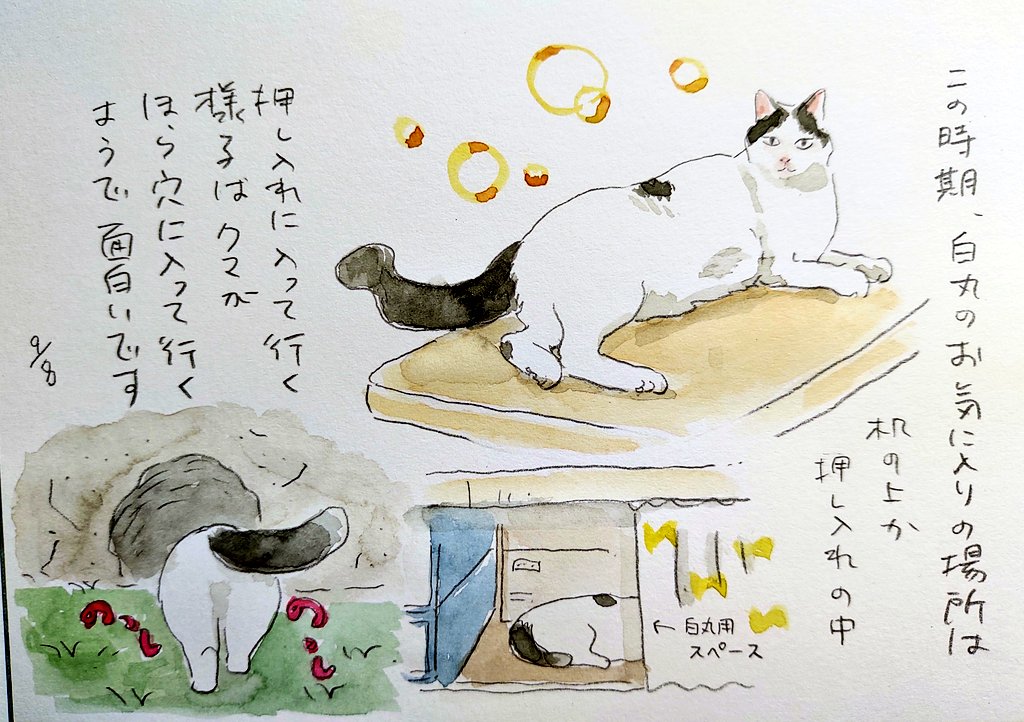 この時期、白丸のお気に入りの場所は
机の上か
押し入れの中
押し入れに入って行く
様子はクマが
ほら穴に入って行く
ようで面白いです
9/8
←白丸用
スペース